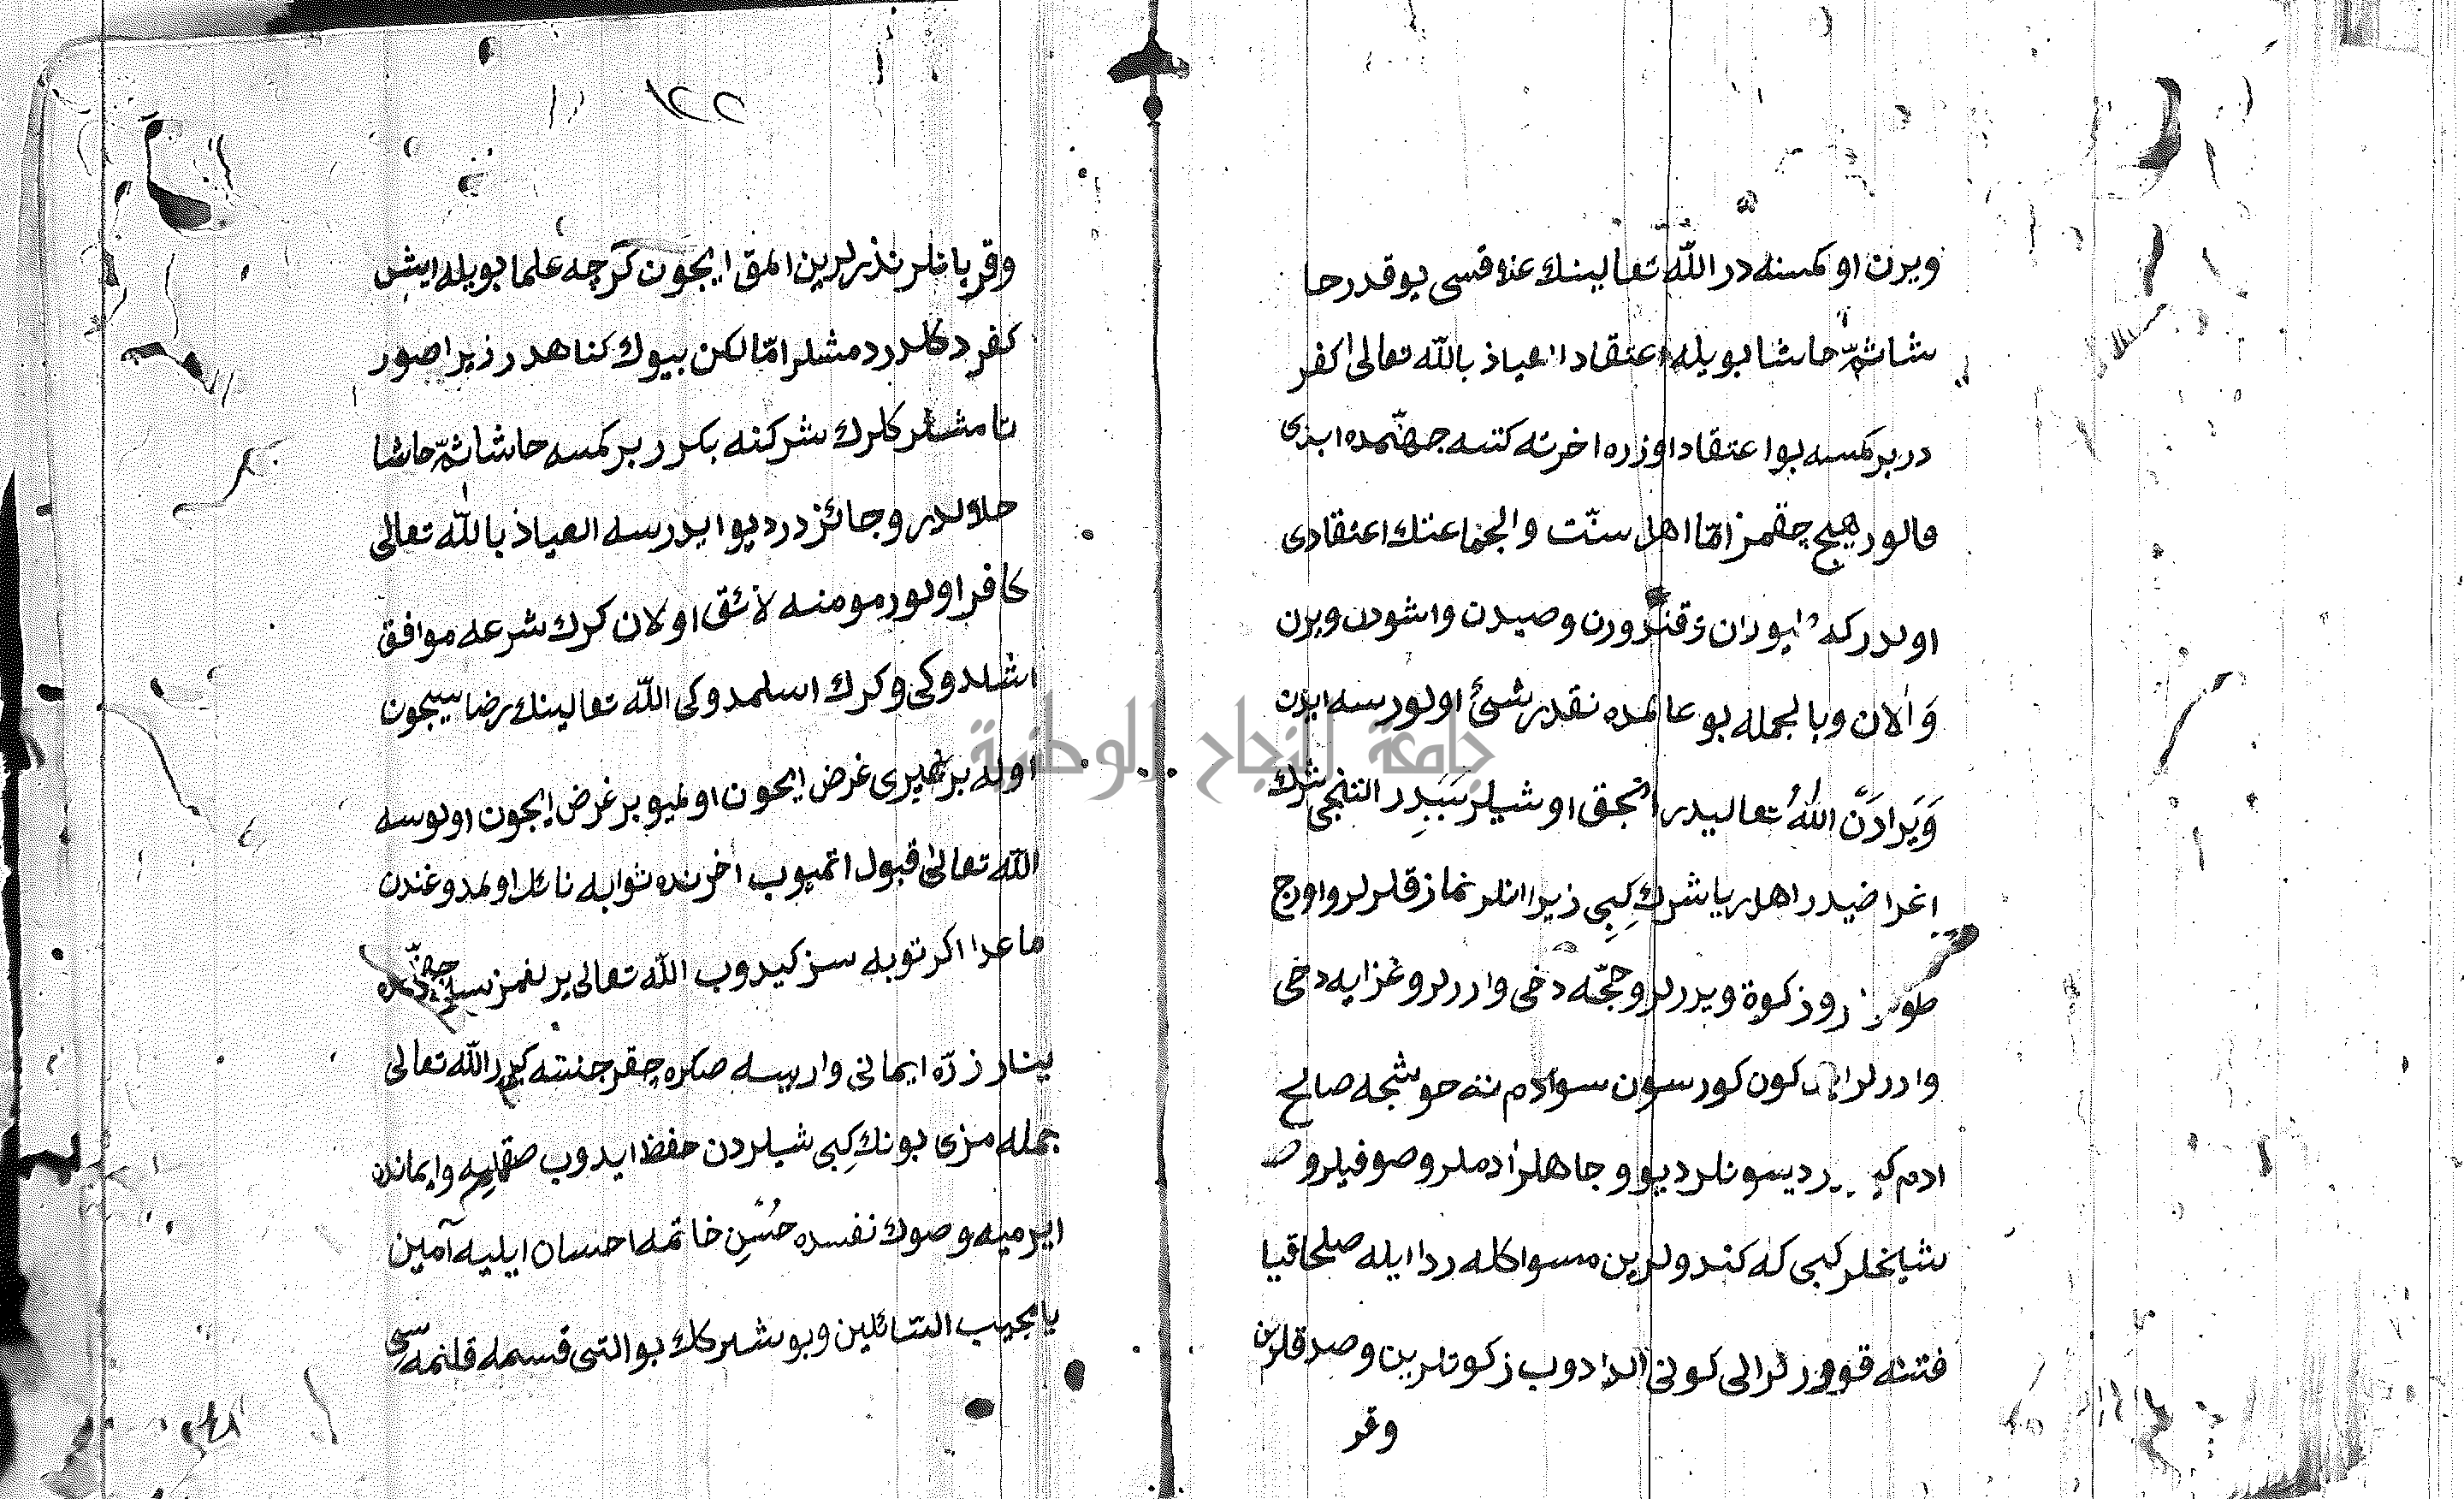 ويرن اوكمسنه در اللّه تعالينك علاقسى يوقدر حا
شا ثمّ حاشا بويله اعتقاد العياذ بالله تعالى كفر
در بر كمسه بو اعتقاد اوزره اخرته كتسه جهنّمده ابدى
قالور هيچ چقمز امّا اهل سنّت والجماعتك اعتقادى
اولدركه طيوران وقندورن وصيدن واشودن ويرن
وَالان وبالجمله بو عالمده نقدر شئ اولورسه ايدن
وَيَرادَن اللّهُ تعاليدر انجق اوشيلر سَبَبدِر التنجى شرك
اغراضيدر اهل ريا شرك كِبِى زيرا انلر نماز قلرلر واورج
طوترلر وزكوة ويررلر وحجّه دخى واررلر وغزايه دخى
واررلر ايل كون كورسون سوادم ننه خوشجه صالح
ادم دیسونلر ديو وجاهلر ادملر وصوفيلر و
شيخلر كبى كه كندولرين مسواكله ردا ايله صلحا قيا
فتنه قويورلر الى كونى الدادوب زكوتلرين وصدقلرين
وقر
١٢٢
وقربانلر نذرلرين المق ايچون كرچه علما بويله ايش
كفر دكلدر دمشلر امّا لكن بيوك كناهدر زيرا صور
تا مشلر كلرك شركنه بكزر بر كمسه حاشا ثمّ حاشا
حلالدر وجائزدر ديو ايدرسه العياذ باللّه تعالى
كافر اولور مومنه لائق اولان كرك شرعه موافق
اشلدوكى وكرك اسلمدوكى اللّه تعالينك رضاسيچون
اوله بر غيرى غرض ايچون اولميو بر غرض ايچون اولوسه
اللّه تعالى قبول اتميوب اخرتده ثوابه نائل اولمدوغندن
ماعدا اكر توبه سز كيدوب اللّه تعالى يرلغمزسه جهنّمده
ينار ذرّه ايمانى واريسه صكره چقر جنته كيرر اللّه تعالى
جمله مزى بونك كِبى شيلردن حفظ ايدوب صقليه وايماندن
ايرميه وصوك نفسده حُسْنِ خاتمه احسان ايليه آمين
يا مجيب السّائلين وبو شركك بو التى قسمه قلنمه سى
جامعة النجاح الوطنية